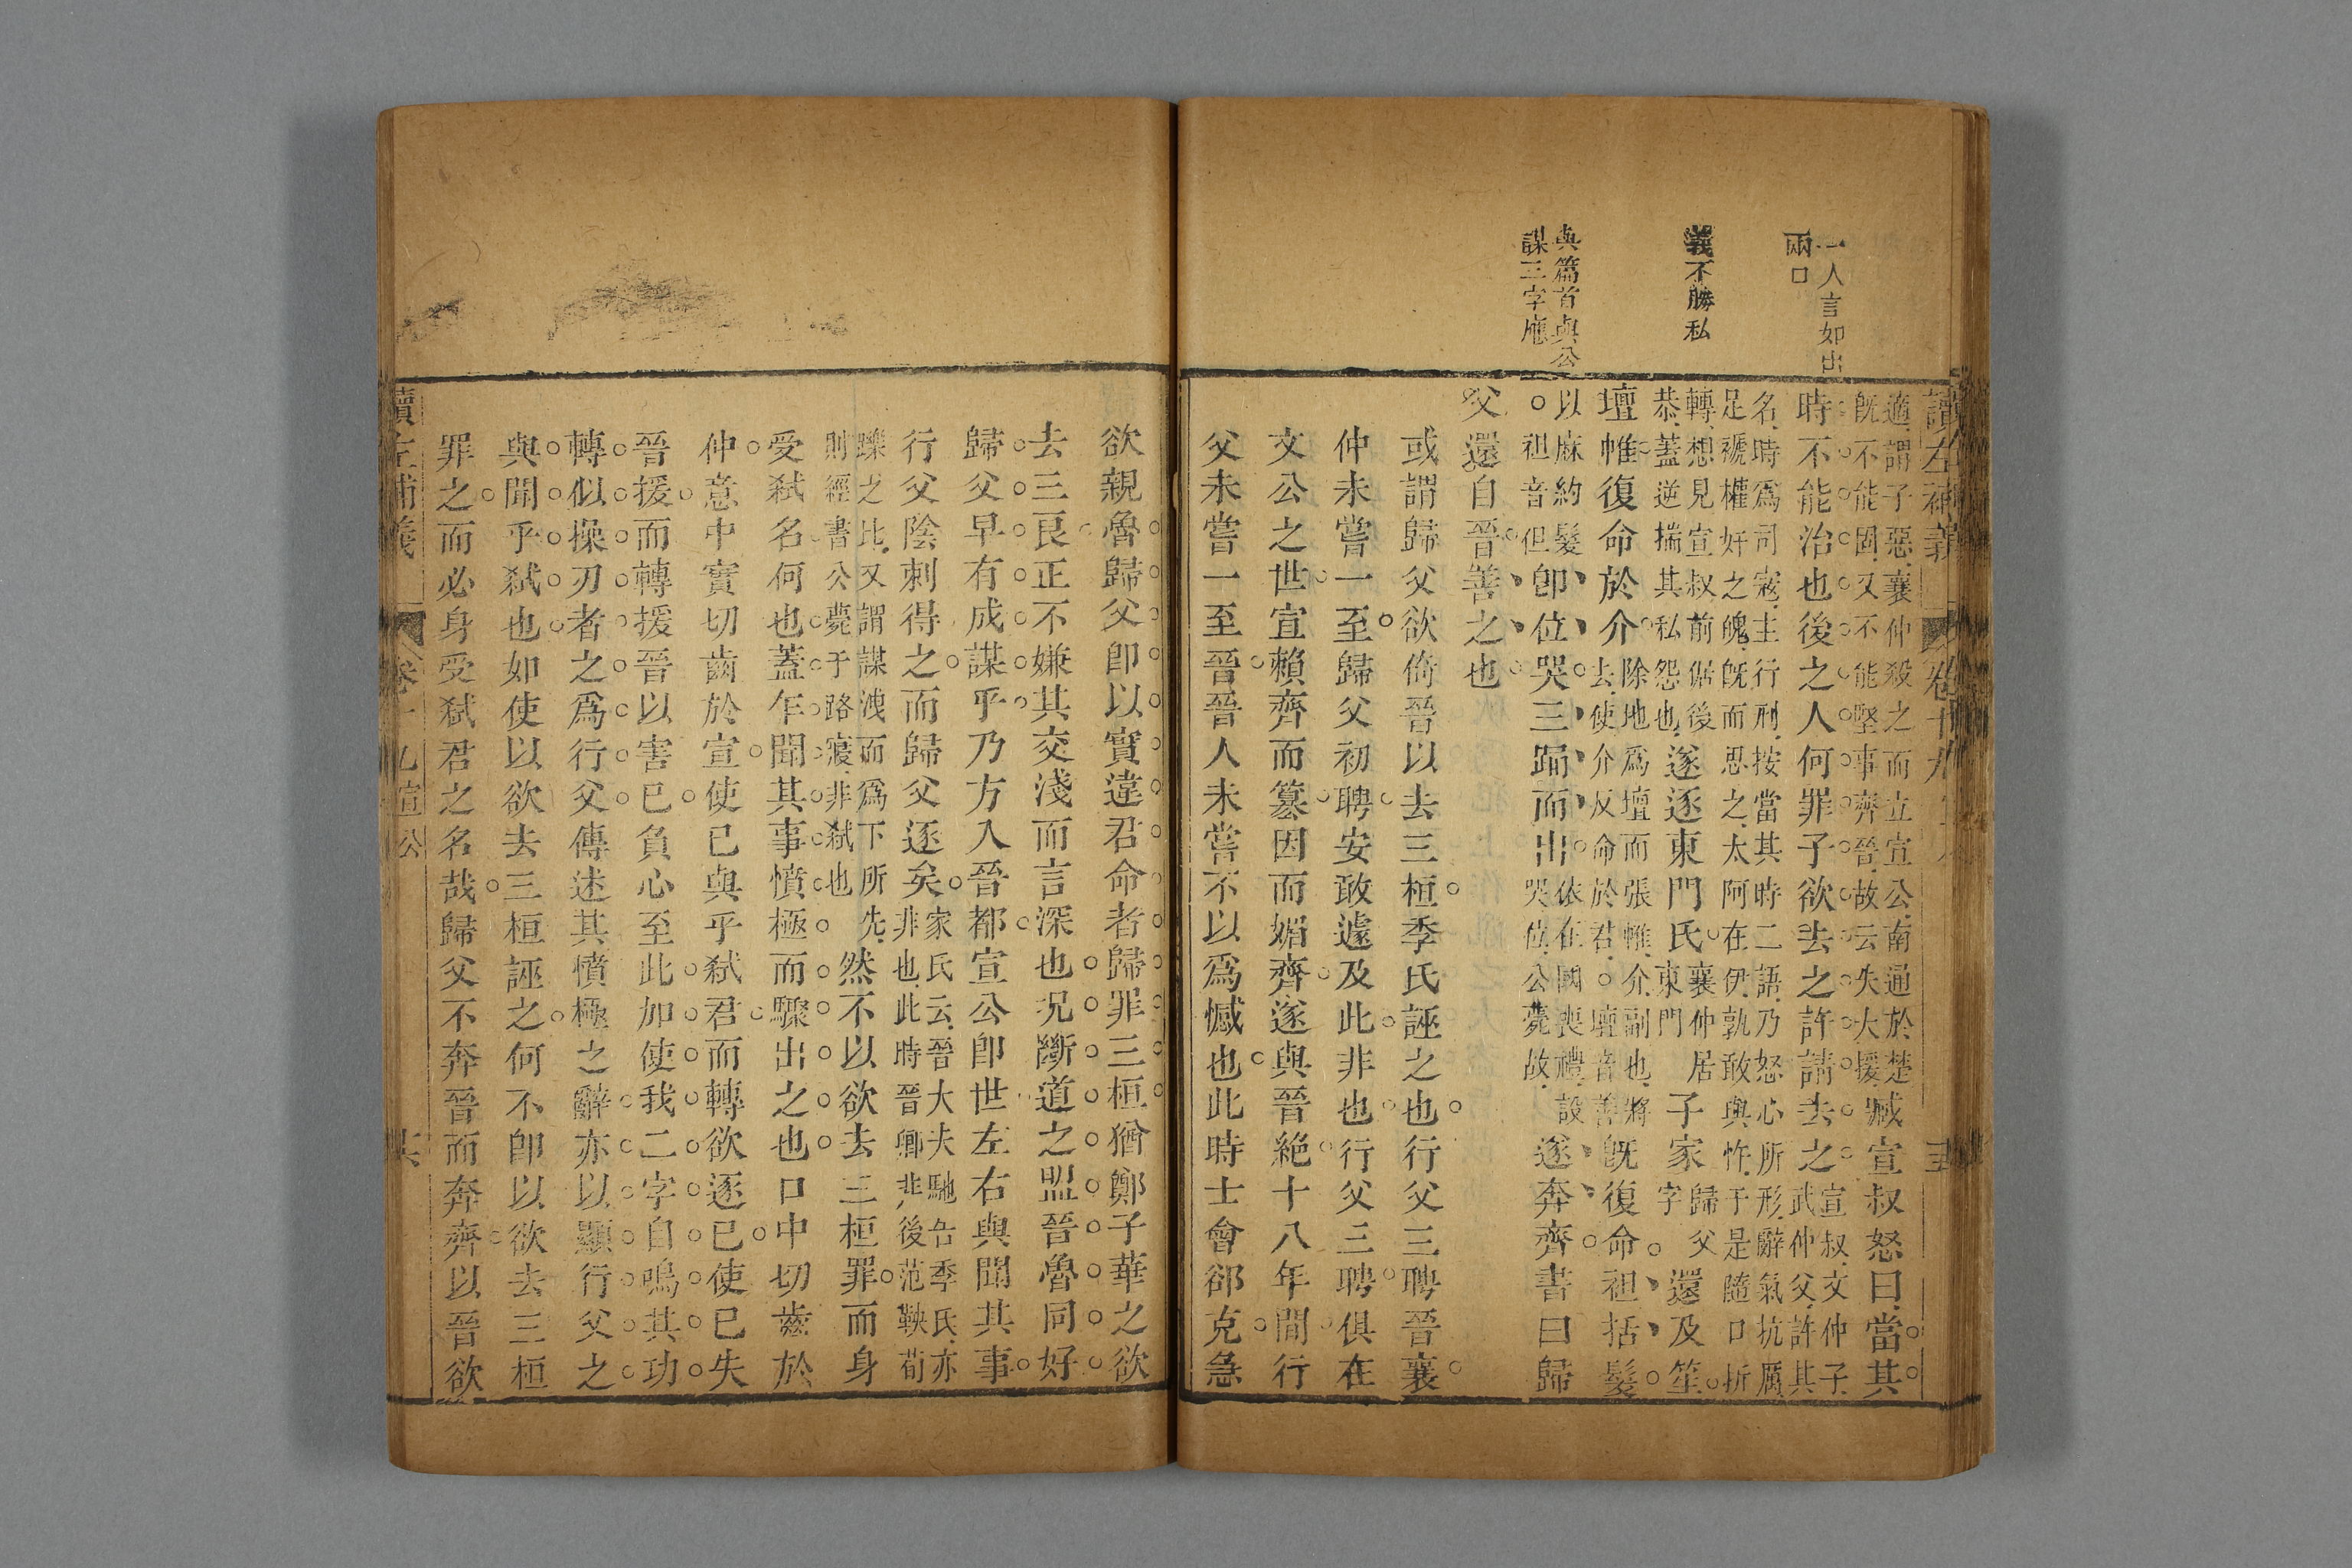 讀左補義
卷十九
一人言如出
兩口
義不勝私
與篇首與公
謀三字應
適謂子惡襄仲殺之而立宣公南通於楚
旣不能固又不能堅事齊晉故云失大援
臧宣叔怒曰當其
時不能治也後之人何罪子欲去之許請去之
宣叔文仲子
武仲父許其
名時爲司寇主行刑按當其時二語乃怒心所形辭氣抗厲
足褫權奸之魄旣而思之太阿在伊孰敢與忤于是隨口折
轉想見宣叔前倨後
恭蓋逆揣其私怨也
遂逐東門氏
襄仲居
東門
子家
歸父
字
還及笙
壇帷復命於介
除地爲壇而張帷介副也將
去使介反命於君○壇音善
旣復命袒括髮
以麻約髮
○袒音但
卽位哭三踊而出
依在國喪禮設
哭位公薨故
遂奔齊書曰歸
父還自晉善之也
或謂歸父欲倚晉以去三桓季氏誣之也行父三聘晉襄
仲未嘗一至歸父初聘安敢遽及此非也行父三聘俱在
文公之世宣賴齊而簒因而媚齊遂與晉絶十八年間行
父未嘗一至晉晉人未嘗不以爲憾也此時士會郤克急
欲親魯歸父卽以實違君命者歸罪三桓猶鄭子華之欲
去三良正不嫌其交淺而言深也況斷道之盟晉魯同好
歸父早有成謀乎乃方入晉都宣公卽世左右與聞其事
行父陰刺得之而歸父逐矣
家氏云晉大夫馳吿季氏亦
非也此時晉卿非後范鞅荀
躒之比又謂謀洩而爲下所先
則經書公薨于路寢非弒也
然不以欲去三桓罪而身
受弒名何也蓋乍聞其事憤極而驟出之也口中切齒於
仲意中實切齒於宣使已與乎弒君而轉欲逐已使已失
晉援而轉援晉以害已負心至此加使我二字自鳴其功
轉似操刃者之爲行父傳述其憤極之辭亦以顯行父之
與聞乎弒也如使以欲去三桓誣之何不卽以欲去三桓
罪之而必身受弒君之名哉歸父不奔晉而奔齊以晉欲
讀左補義
宣公